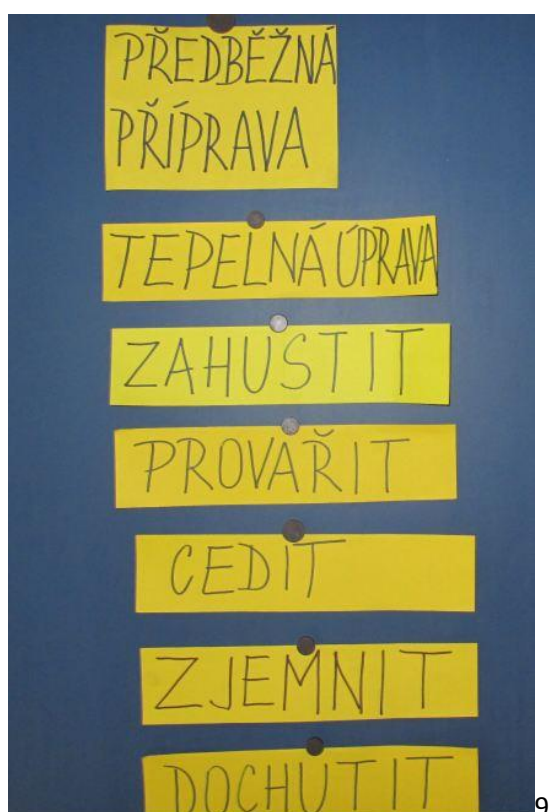 PŘEDBĚŽNÁ
PŘÍPRAVA
TEPELNÁ ÚPRAVA
ZAHUSTIT
PROVAŘIT
CEDIT
ZJEMNIT
DOCHUTIT
9